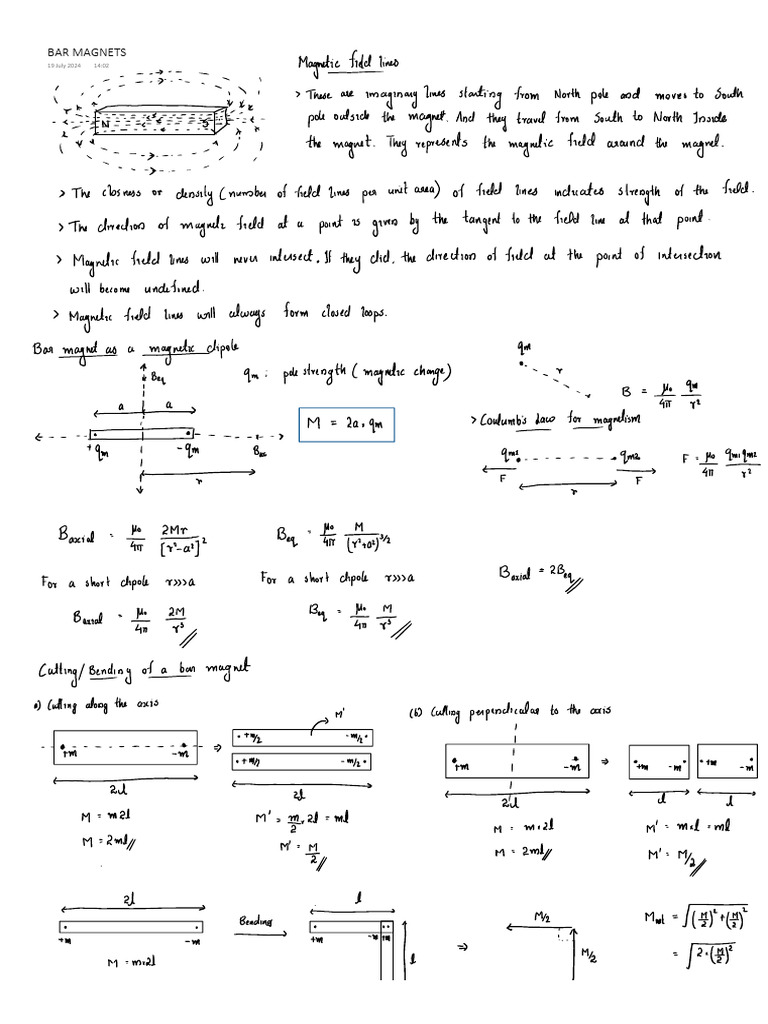 BAR MAGNETS
19 July 2024 14:02
N S
Magnetic field lines
> These are imaginary lines starting from North pole and moves to South
pole outside the magnet. And they travel from South to North Inside
the magnet. They represents the magnetic field around the magnet.
> The closness or density (number of field lines per unit area) of field lines indicates strength of the field.
> The direction of magnetic field at a point is given by the tangent to the field line at that point.
> Magnetic field lines will never intersect. If they did, the direction of field at the point of intersection
will become undefined.
> Magnetic field lines will always form closed loops.
Bar magnet as a magnetic dipole
Beq
a a
+qm -qm Bax
r
qm : pole strength (magnetic charge)
M = 2a × qm
qm
r
B = μ₀/4π qm/r²
> Coulumb's law for magnetism
qm1 qm2
F F
r
F = μ₀/4π qm1 qm2/r²
Baxial = μ₀/4π 2Mr/[r²-a²]²
Beq = μ₀/4π M/(r²+a²)^3/2
For a short dipole r>>>a
For a short dipole r>>>a
Baxial = 2Beq
Baxial = μ₀/4π 2M/r³
Beq = μ₀/4π M/r³
Cutting/Bending of a bar magnet
a) Cutting along the axis
(b) Cutting perpendicular to the axis
+m -m
2l
M = m×2l
M = 2ml
⇒
M'
+m/2 -m/2
+m/2 -m/2
2l
M' = m/2 × 2l = ml
M' = M/2
+m -m
2l
M = m×2l
M = 2ml
⇒
+m -m +m -m
l l
M' = m×l = ml
M' = M/2
2l
+m -m
M = m×2l
Bending
l
+m -m +m
l
⇒
M/2
M/2
Mnet = √(M/2)²+(M/2)²
= √2×(M/2)²